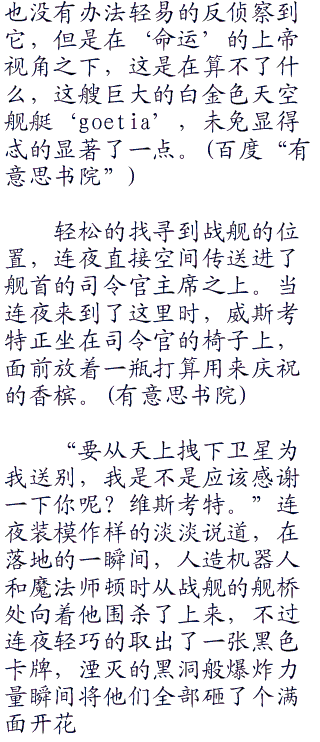 也没有办法轻易的反侦察到
它，但是在‘命运’的上帝
视角之下，这是在算不了什
么，这艘巨大的白金色天空
舰艇‘goetia’，未免显得
忒的显著了一点。(百度“有
意思书院”)
轻松的找寻到战舰的位
置，连夜直接空间传送进了
舰首的司令官主席之上。当
连夜来到了这里时，威斯考
特正坐在司令官的椅子上，
面前放着一瓶打算用来庆祝
的香槟。(有意思书院)
“要从天上拽下卫星为
我送别，我是不是应该感谢
一下你呢？维斯考特。”连
夜装模作样的淡淡说道，在
落地的一瞬间，人造机器人
和魔法师顿时从战舰的舰桥
处向着他围杀了上来，不过
连夜轻巧的取出了一张黑色
卡牌，湮灭的黑洞般爆炸力
量瞬间将他们全部砸了个满
面开花